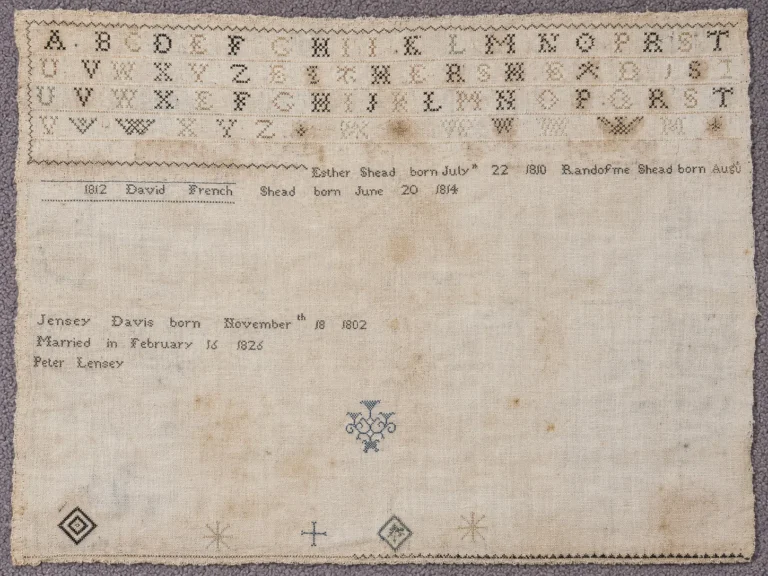 A B C D E F G H I I K L M N O P R S T
U V W X Y Z
U V W X E F G H I J K L M N O P Q R S T
V W X Y Z
Esther Shead born July 22 1810 Randofme Shead born Augu
1812 David French Shead born June 20 1814
Jensey Davis born November th 18 1802
Married in February 16 1826
Peter Lensey